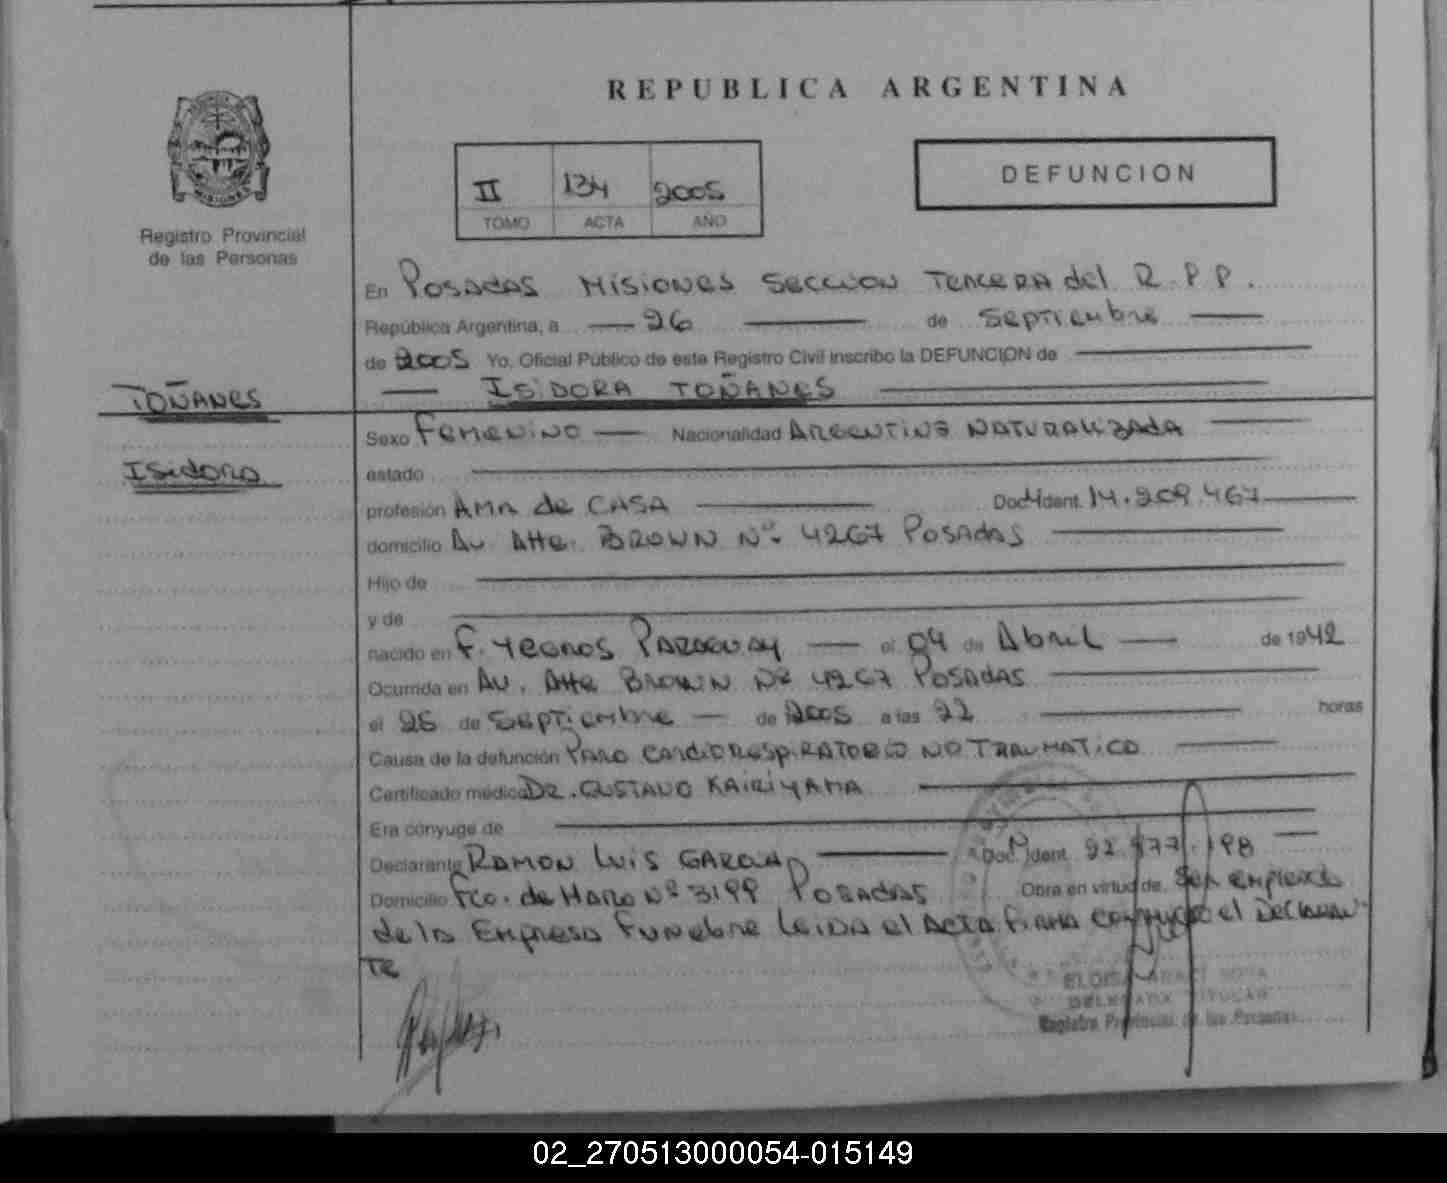 REPUBLICA ARGENTINA
II 134 2005
TOMO ACTA AÑO
DEFUNCION
Registro Provincial
de las Personas
En POSADAS MISIONES SECCION TERCERA del R.P.P.
República Argentina, a 26 de Septiembre
de 2005 Yo, Oficial Público de este Registro Civil inscribo la DEFUNCION de
ISIDORA TOÑANES
TOÑANES
Isidora
Sexo Femenino Nacionalidad ARGENTINA NATURALIZADA
estado
profesión AMA de CASA Doc. Ident. 14.209.467
domicilio Av. Alte. BROWN Nº 4267 POSADAS
Hijo de
y de
nacido en F. Yegros PARAGUAY el 04 de Abril de 1942
Ocurrida en Av. Alte BROWN Nº 4267 POSADAS
el 25 de Septiembre de 2005 a las 22 horas
Causa de la defunción PARO CARDIORESPIRATORIO NO TRAUMATICO
Certificado médico DR. GUSTAVO KAIRIYAMA
Era cónyuge de
Declarante RAMON LUIS GARCIA Doc. Ident.
Domicilio Fco. de Haro Nº 3199 POSADAS Obra en virtud de Ser empleado
de la Empresa Funebre Leida el ACTA FIRMA conmigo el Declaran-
TE
DELEGADA TITULAR
Registro Provincial de las Personas
02_270513000054-015149